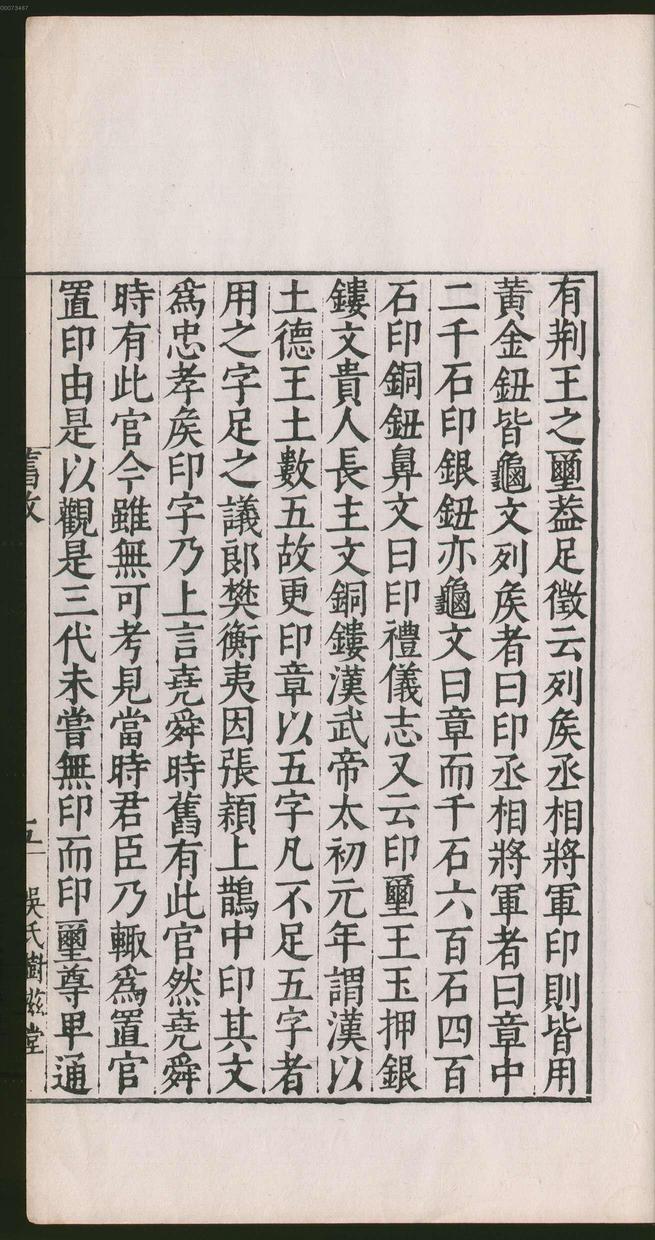 有荆王之璽葢足徵云列矦丞相將軍印則皆用
黃金鈕皆龜文列矦者曰印丞相將軍者曰章中
二千石印銀鈕亦龜文曰章而千石六百石四百
石印銅鈕鼻文曰印禮儀志又云印璽王玉押銀
鏤文貴人長主文銅鏤漢武帝太初元年謂漢以
土德王土數五故更印章以五字凡不足五字者
用之字足之議郎樊衡夷因張顈上鵲中印其文
爲忠孝矦印字乃上言堯舜時舊有此官然堯舜
時有此官今雖無可考見當時君臣乃輙爲置官
置印由是以觀是三代未嘗無印而印璽尊卑通
舊攷 五 吳氏樹滋堂
00073467